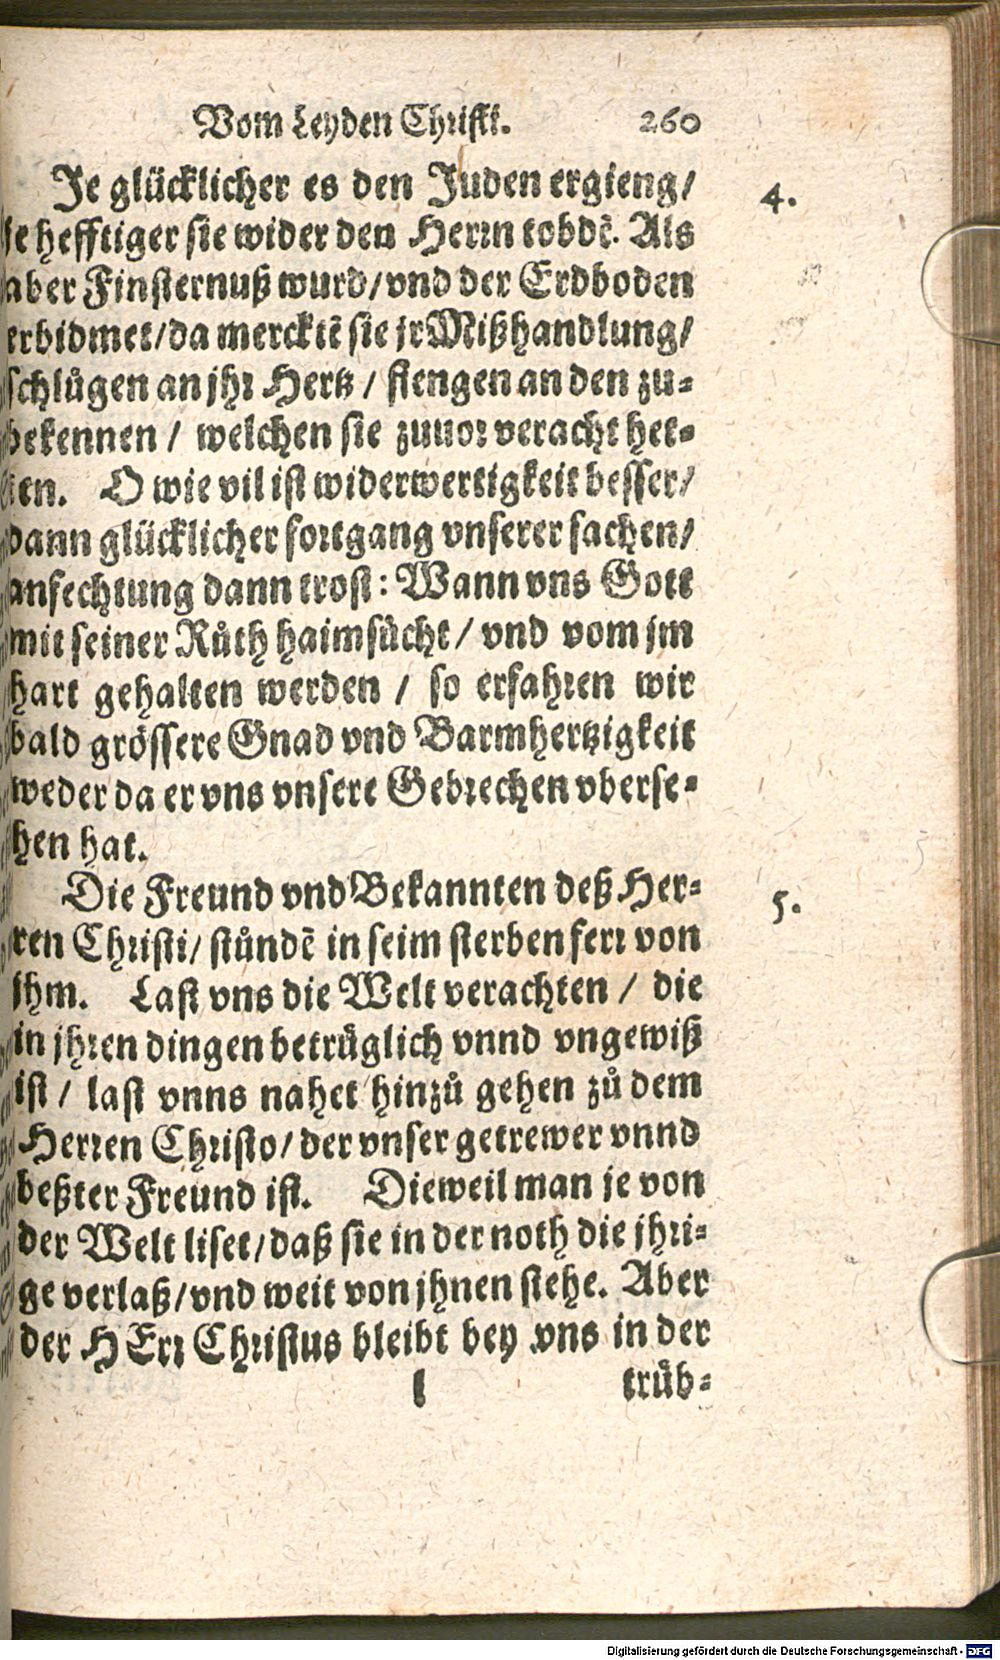 Vom Leyden Christi. 260
Je glücklicher es den Juden ergieng/ 4.
je hefftiger sie wider den Herrn tobdē. Als
aber Finsternuß wurd/vnd der Erdboden
erbidmet/da mercktē sie jr Mißhandlung/
schlůgen an jhr Hertz / fiengen an den zu-
bekennen / welchen sie zuuor veracht het-
ten. O wie vil ist widerwertigkeit besser/
dann glücklicher fortgang vnserer sachen/
anfechtung dann trost: Wann vns Gott
mit seiner Růth haimsůcht/ vnd vom jm
hart gehalten werden / so erfahren wir
bald grössere Gnad vnd Barmhertzigkeit
weder da er vns vnsere Gebrechen vberse-
hen hat.
Die Freund vnd Bekannten deß Her- 5.
ren Christi/ stůndē in seim sterben ferr von
jhm. Last vns die Welt verachten / die
in jhren dingen betrüglich vnnd vngewiß
ist / last vnns nahet hinzů gehen zů dem
Herren Christo/ der vnser getrewer vnnd
beßter Freund ist. Dieweil man je von
der Welt liset/daß sie in der noth die jhri-
ge verlaß/vnd weit von jhnen stehe. Aber
der HErr Christus bleibt bey vns in der
l trüb-
Digitalisierung gefördert durch die Deutsche Forschungsgemeinschaft - DFG